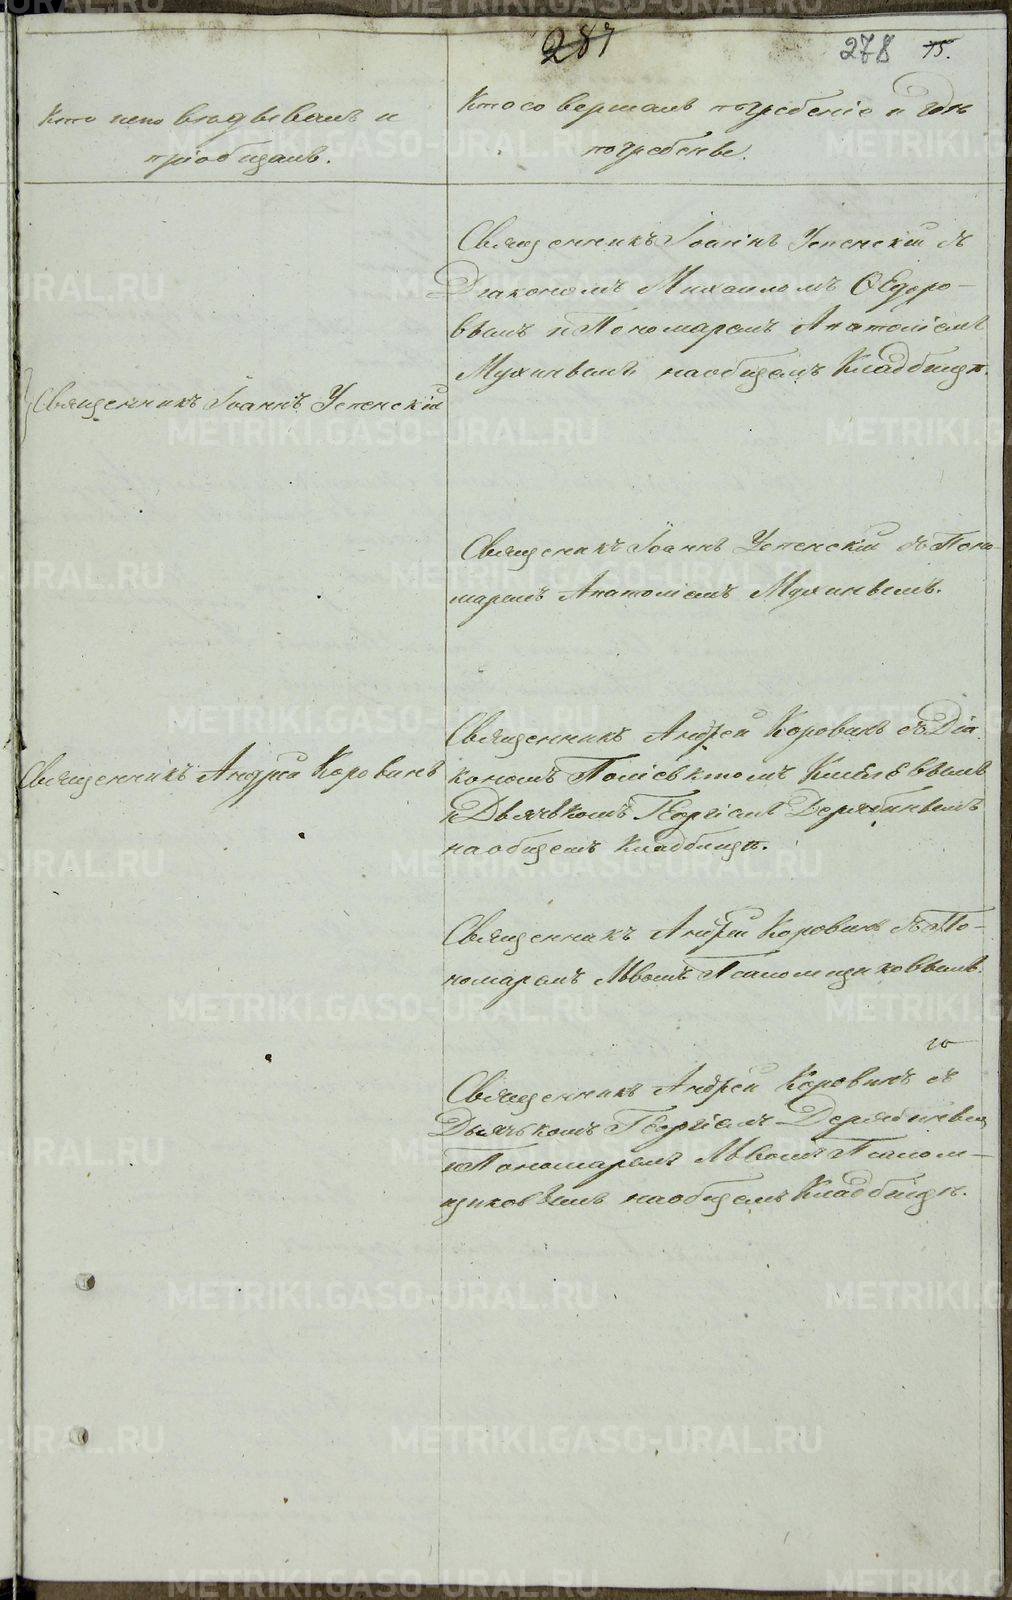 287 278 15.
Кто исповѣдывалъ и
пріобщалъ.
Кто совершалъ погребеніе и гдѣ
погребены.
Священникъ Іоаннъ Успенскій съ
Діакономъ Михаиломъ Ѳедоро-
вымъ и Пономаремъ Анатоліемъ
Мухинымъ на общемъ Кладбищѣ.
Священникъ Іоаннъ Успенскій
Священникъ Іоаннъ Успенскій съ Поно-
маремъ Анатоліемъ Мухинымъ.
Священникъ Андрей Коровинъ съ Діа
Священникъ Андрей Коровинъ
кономъ Поліевктомъ
и Дьячкомъ Георгіемъ Дерябинымъ
на общемъ Кладбищѣ.
Священникъ Андрей Коровинъ съ По-
номаремъ Львомъ Псаломщиковымъ.
Священникъ Андрей Коровинъ съ
Дьячкомъ Георгіемъ Дерябинымъ
и Пономаремъ Львомъ Псалом-
щиковымъ на общемъ Кладбищѣ.
METRIKI.GASO-URAL.RU